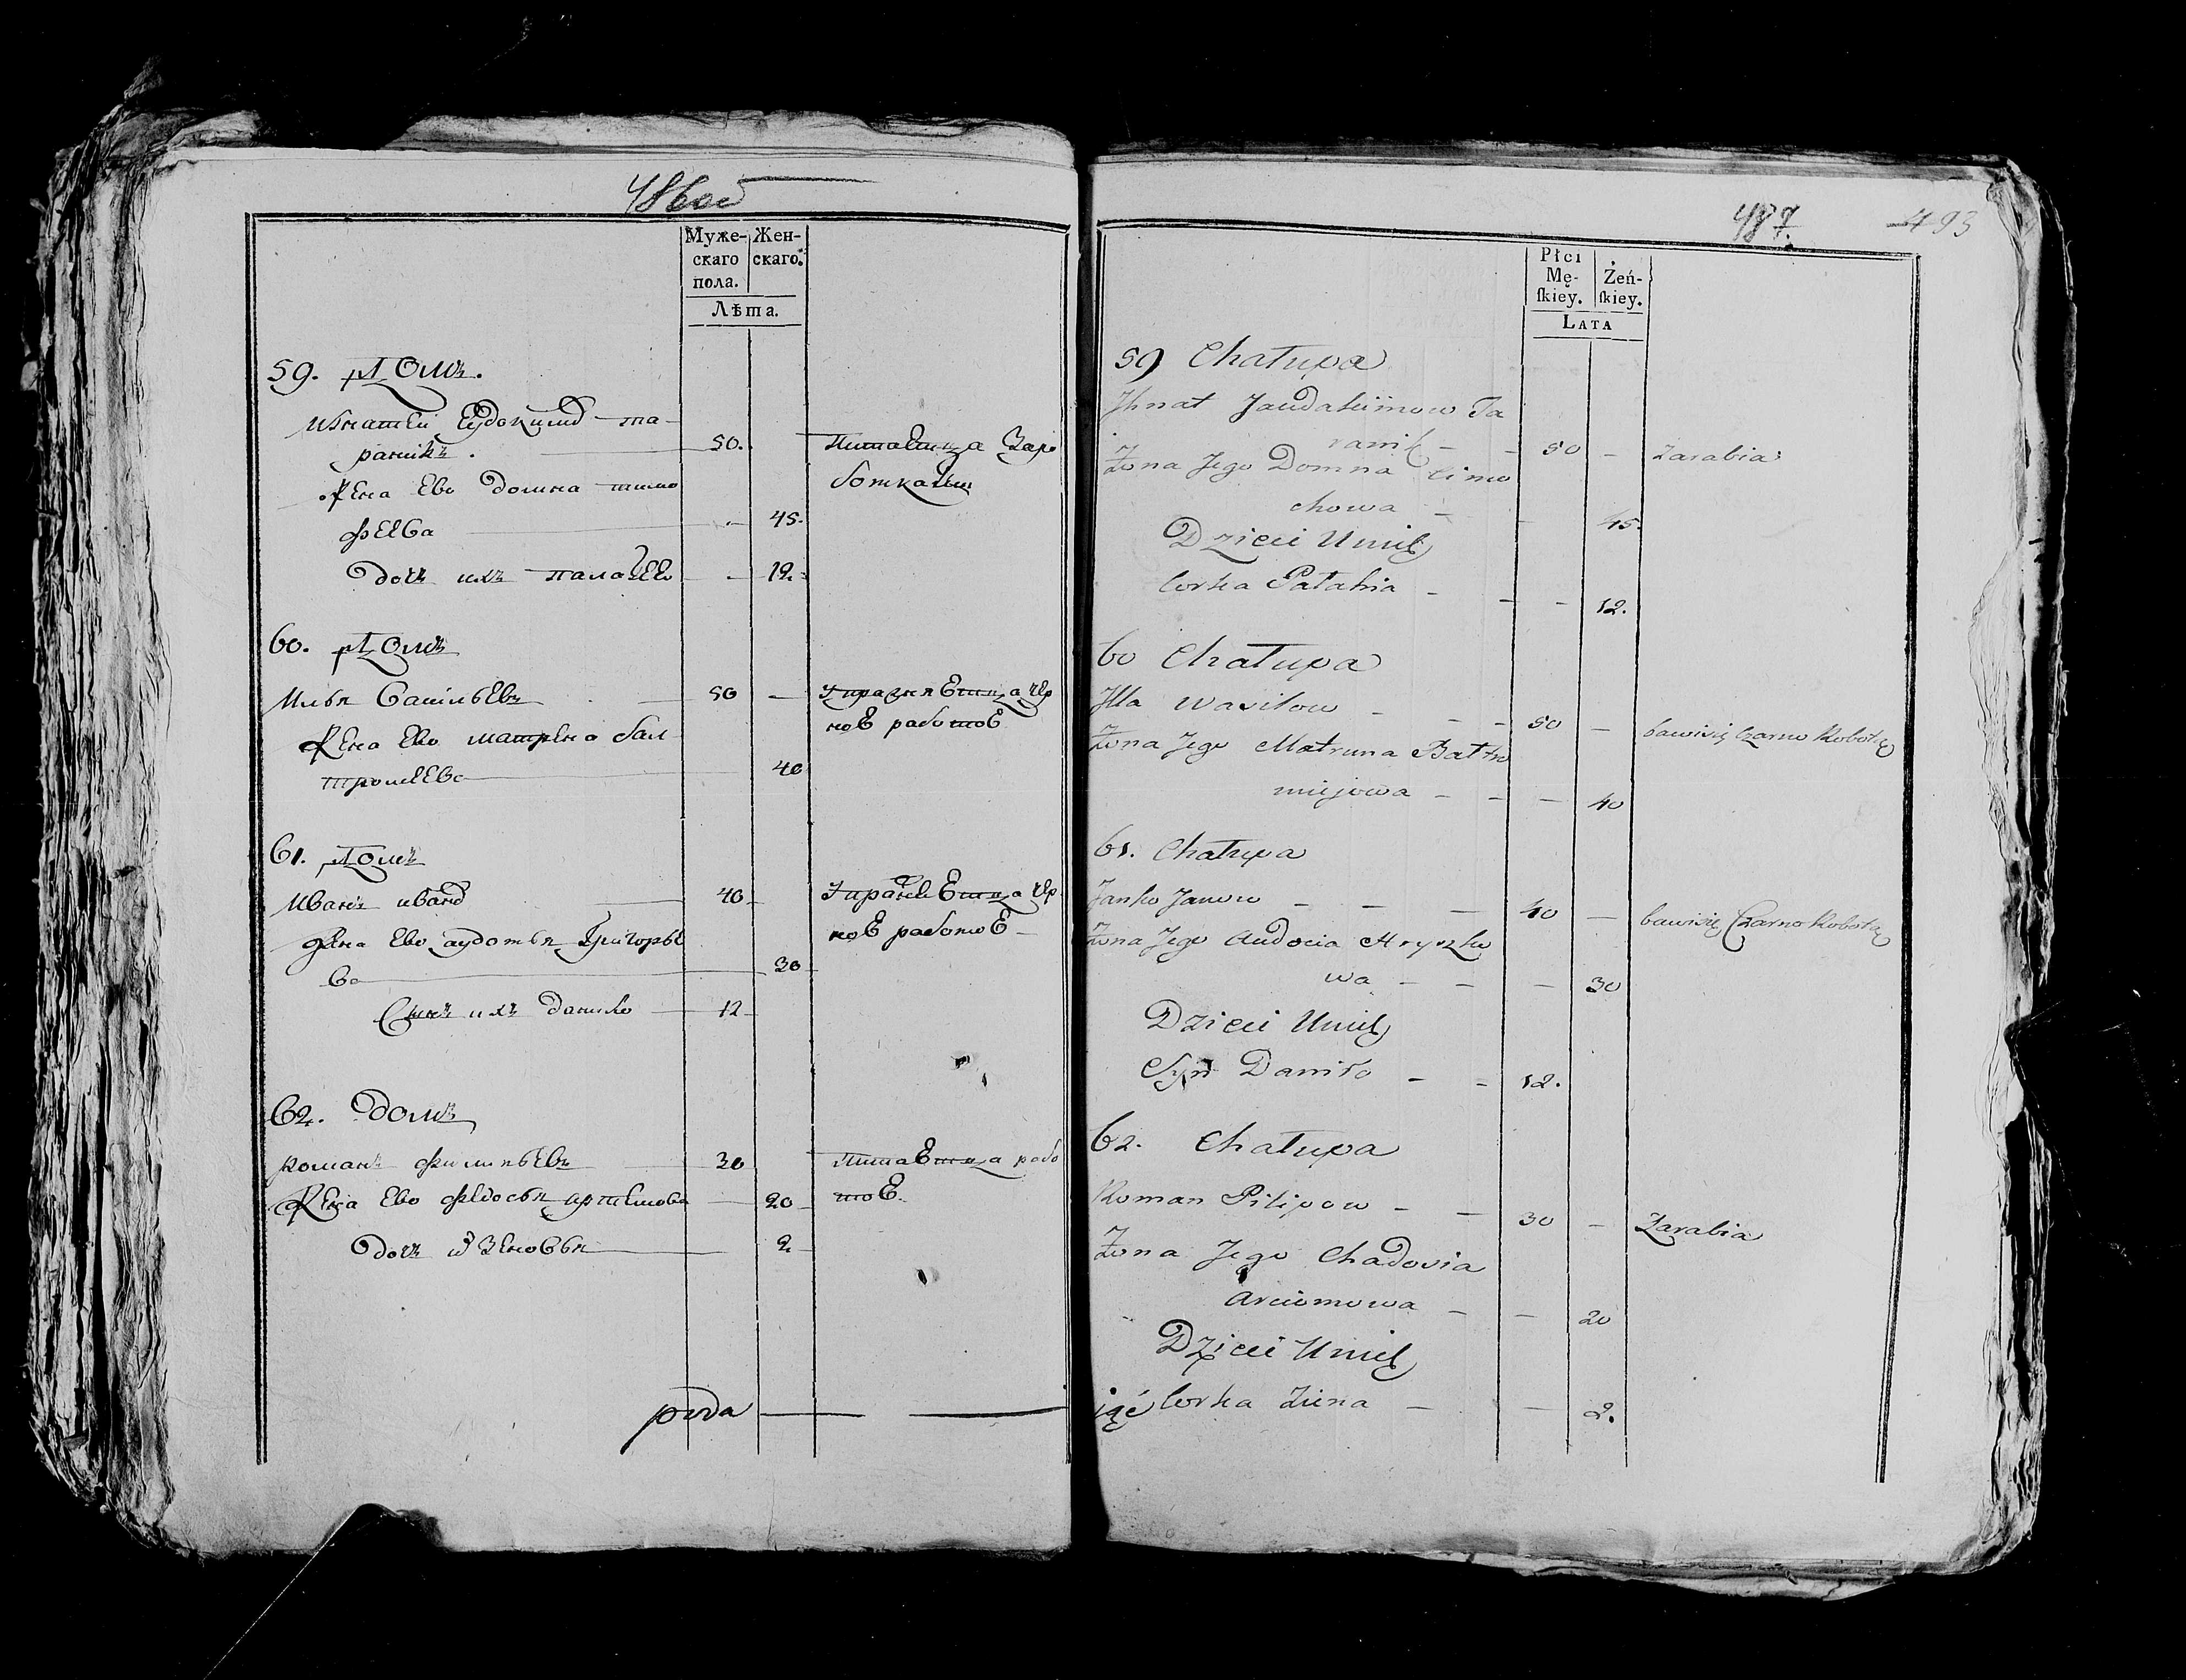 486 об
Муже-
скаго
пола.
Жен-
скаго.
Лѣта.
59. Домъ.
Игнатей Еудокимов та-
раникъ. 50. питаеица Заро
ботками
Жена Ево Домна тимо
феева 45.
Дочь ихъ палагея 12.
60. Домъ
Илья Васильевъ 50 — упражняеица чер
ной работой
Жена Ево матрена бал-
тромеева 40
61. Домъ
Иванъ иванов 40 упражняеица чер
ной работой
Жена Ево аудотья Григорье
ва 30
Сынъ ихъ Данило 12
62. Домъ
романъ филипьевъ 30 питаеица рабо
той.
Жена Ево федосья артемова 20
Дочь их Зеновья 2
рода
487. 493
Płci
Mę-
ſkiey.
Żeń-
ſkiey.
LATA
59 Chałupa
Ihnat Jaudakimow Ta
ranik - - 50 - Zarabia
Żona Jego Domna Cimo
chowa - - 45.
Dzieci Unich
Corka Pałahia - - - 12.
60 Chałupa
Illa Wasilow - - - 50 - bawisię Czarno Robotą
Żona Jego Matruna Bałtro
miejowa - - - 40
61. Chałupa
Janko Janow - - - 40 - bawisię Czarno Robotą
Żona Jego Audocia Hryszko
wa - - - 30
Dzieci Unich
Syn Daniło - - 12.
62. Chałupa
Roman Pilipow - - 30 - Zarabia
Żona Jego Chadosia
Arciomowa - - 20
Dzieci Unich
Corka Zina - - 2.